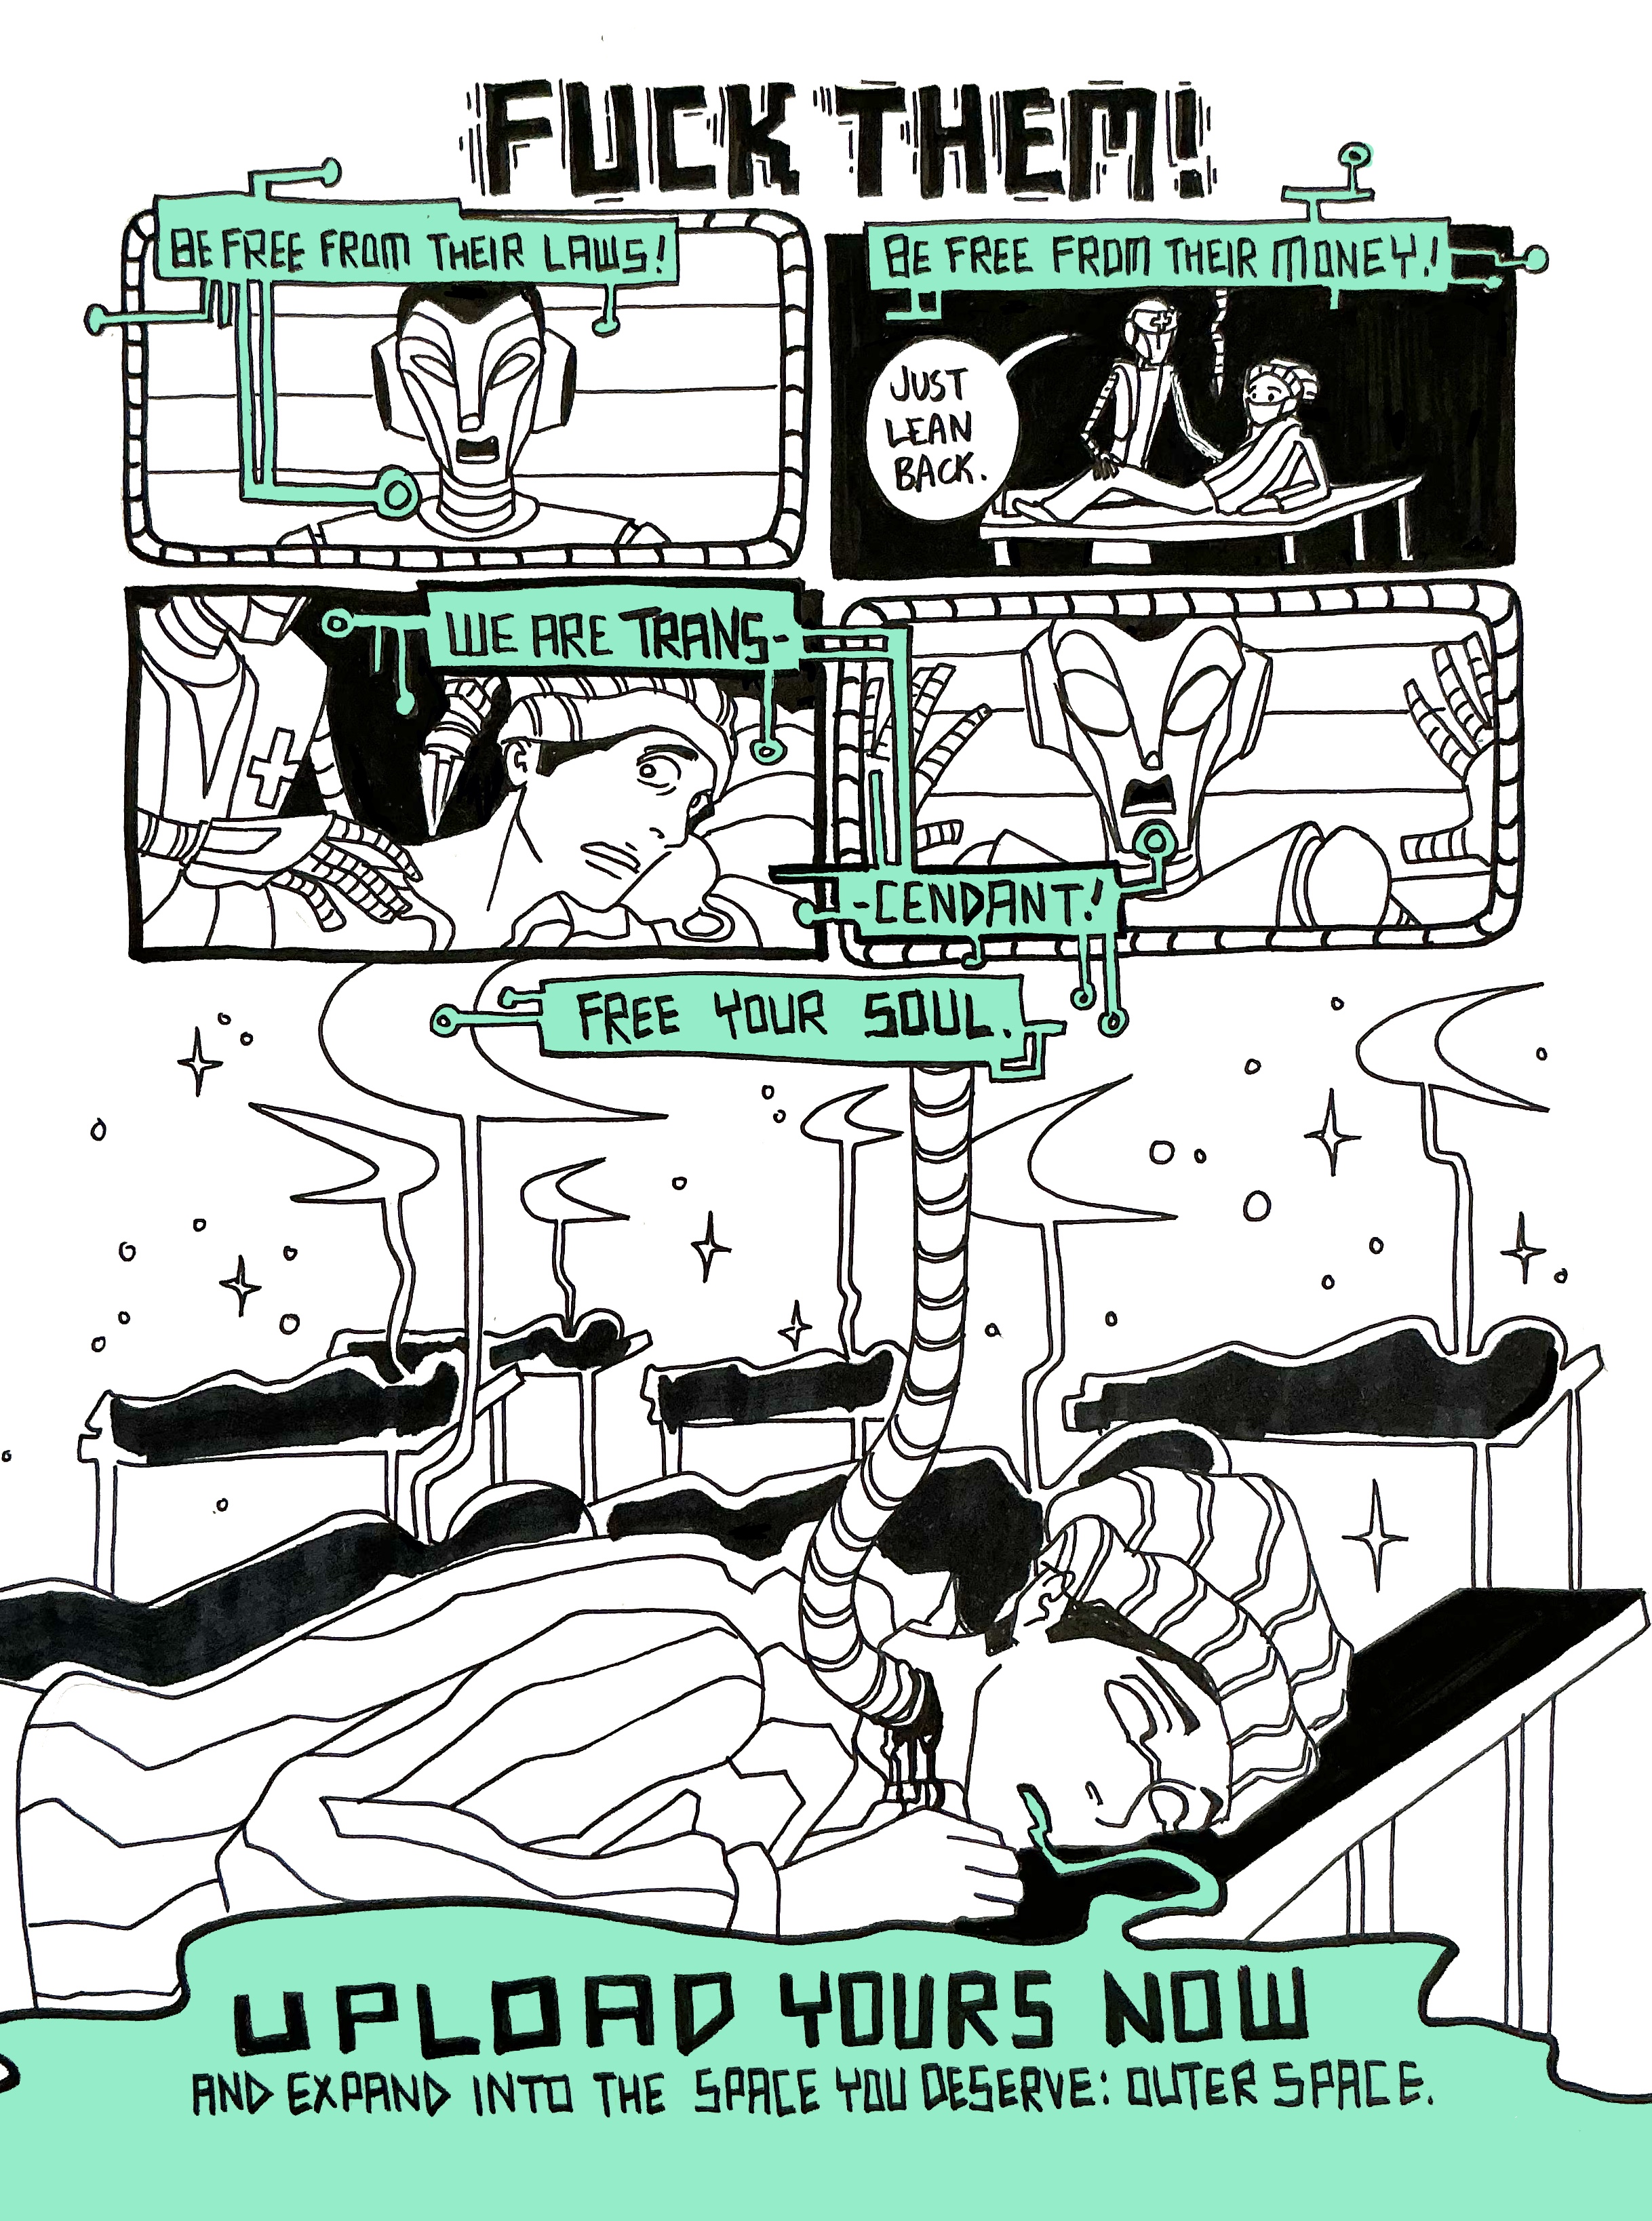 FUCK THEM!
BE FREE FROM THEIR LAWS!
BE FREE FROM THEIR MONEY!
JUST
LEAN
BACK.
WE ARE TRANS-
-CENDANT!
FREE YOUR SOUL.
UPLOAD YOURS NOW
AND EXPAND INTO THE SPACE YOU DESERVE: OUTER SPACE.